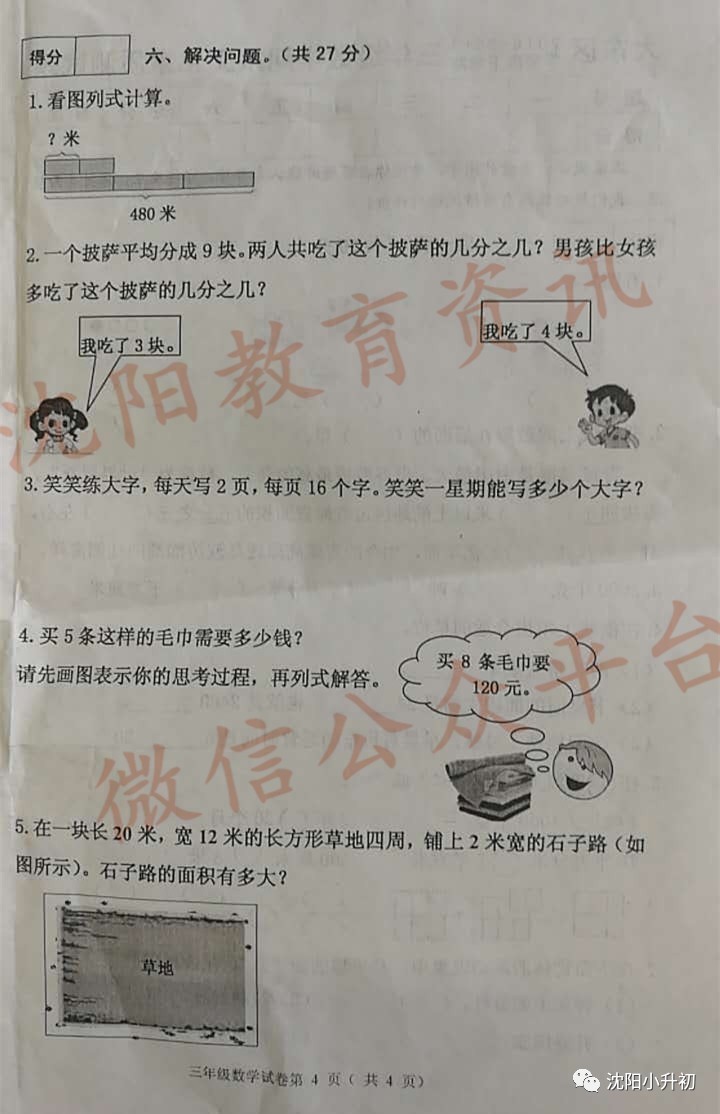 得分
六、解决问题。(共 27 分)
1.看图列式计算。
？米
480 米
2.一个披萨平均分成 9 块。两人共吃了这个披萨的几分之几？男孩比女孩
多吃了这个披萨的几分之几？
我吃了 3 块。
我吃了 4 块。
3.笑笑练大字，每天写 2 页，每页 16 个字。笑笑一星期能写多少个大字？
4.买 5 条这样的毛巾需要多少钱？
请先画图表示你的思考过程，再列式解答。
买 8 条毛巾要
120 元。
5.在一块长 20 米，宽 12 米的长方形草地四周，铺上 2 米宽的石子路（如
图所示）。石子路的面积有多大？
草地
三年级数学试卷第 4 页（共 4 页）
沈阳教育资讯
微信公众平台
沈阳小升初